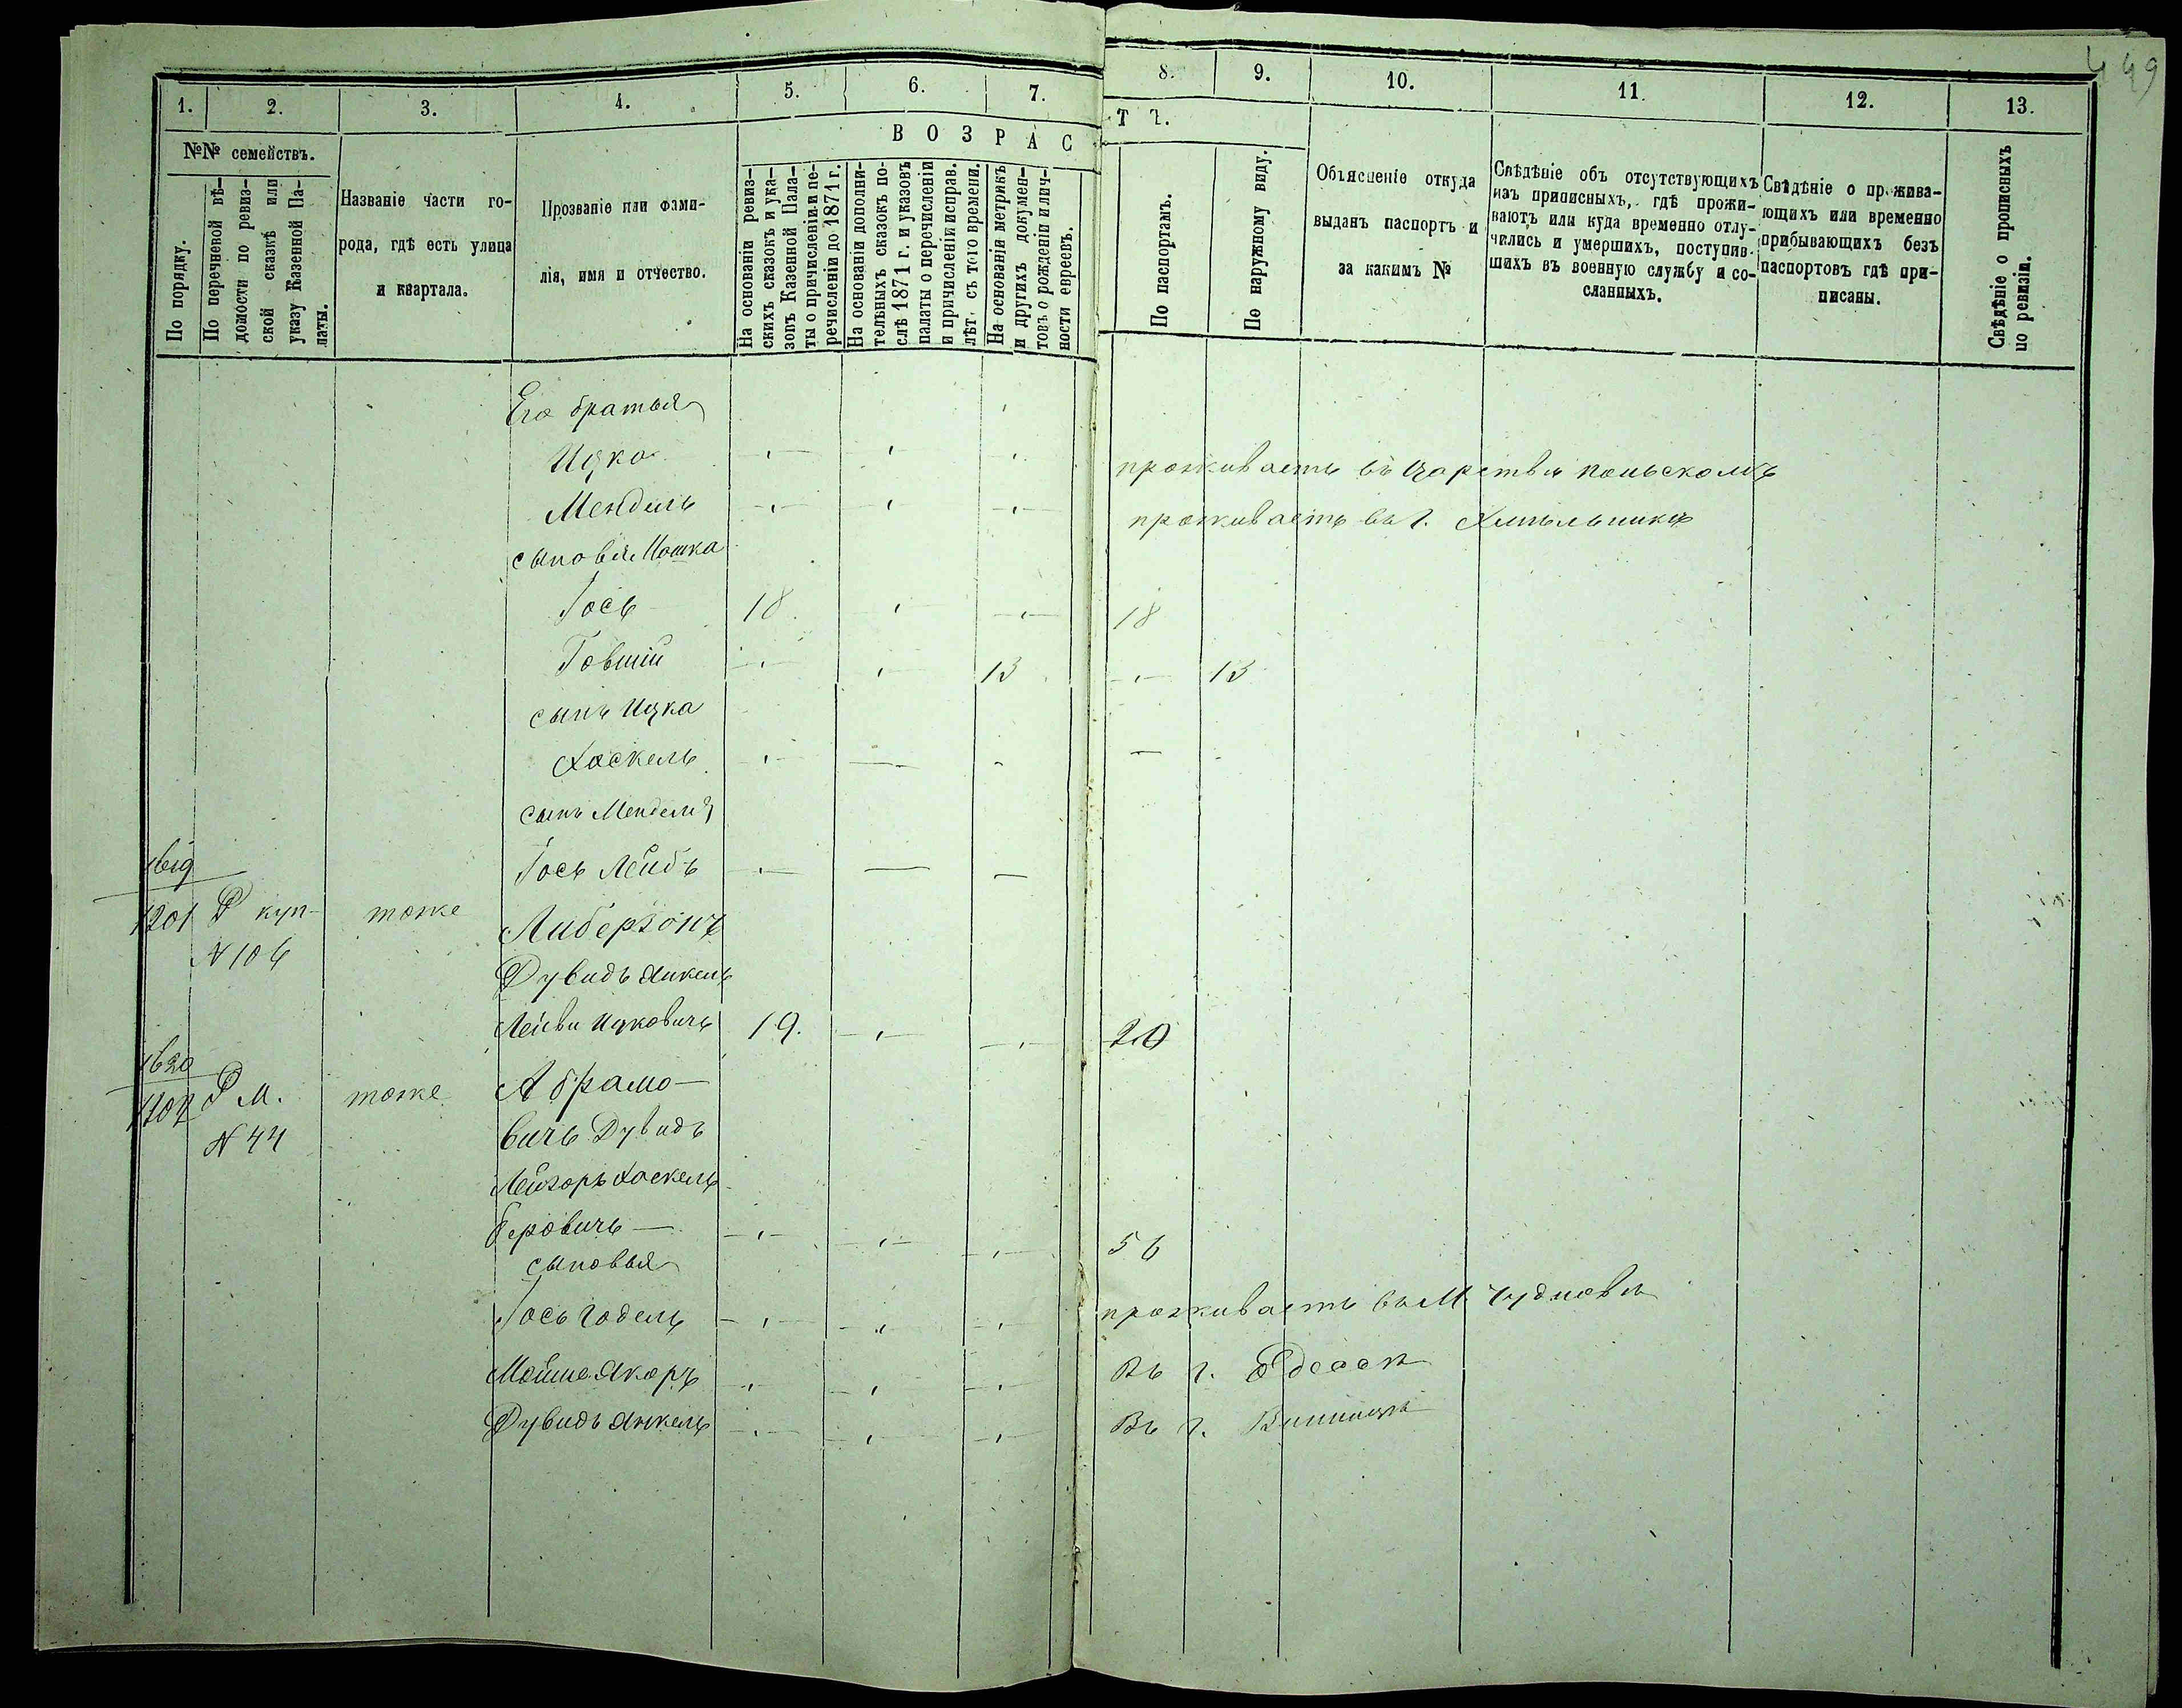 449
1. 2. 3. 4. 5. 6. 7. 8. 9. 10. 11. 12. 13.
№№ семействъ.
По порядку.
По перечневой вѣ-
домости по ревиз-
ской сказкѣ или
указу Казенной Па-
латы.
Названіе части го-
рода, гдѣ есть улица
и квартала.
Прозваніе или фами-
лія, имя и отчество.
ВОЗРАСТЪ.
На основаніи ревиз-
скихъ сказокъ и ука-
зовъ Казенной Пала-
ты о причисленіи и пе-
речисленіи до 1871 г.
На основаніи дополни-
тельныхъ сказокъ по-
слѣ 1871 г. и указовъ
палаты о перечисленіи
и причисленіи исправ.
лѣт. съ того времени.
На основаніи метрикъ
и другихъ докумен-
товъ о рожденіи и лич-
ности евреевъ.
По паспортамъ.
По наружному виду.
Объясненіе откуда
выданъ паспортъ и
за какимъ №
Свѣдѣніе объ отсутствующихъ
изъ приписныхъ, гдѣ прожи-
ваютъ или куда временно отлу-
чились и умершихъ, поступив-
шихъ въ военную службу и со-
сланныхъ.
Свѣдѣніе о прожива-
ющихъ или временно
прибывающихъ безъ
паспортовъ гдѣ при-
писаны.
Свѣдѣніе о прописныхъ
по ревизіи.
Его братья
Ицко проживаетъ въ Царствѣ Польскомъ
Мендель проживаетъ въ г. Хмѣльникѣ
сыновья Мошка
Іось 18. 18
Говшій 13 13
сынъ Ицка
Хаскель
сынъ Менделя
Іось Лейбъ
1619
1201 Р куп. тоже Либерзонъ
№ 106
Дувидъ Янкель
Лейви Ицковичъ 19. 20
1620
Р М. тоже Абрамо-
№ 44 вичъ Дувидъ
Лейзоръ Хаскель
Беровичъ 56
сыновья
Іось Годель проживаетъ въ М. Чудновѣ
Мойше Якоръ Въ г. Одессѣ
Дувидъ Янкель Въ г. Винницѣ